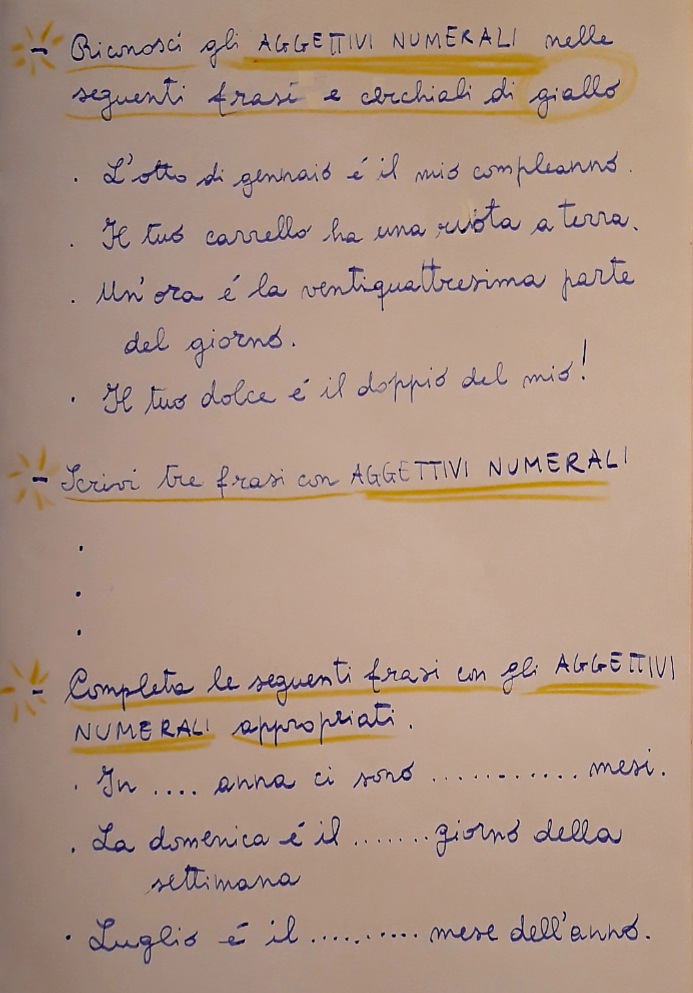 - Riconosci gli AGGETTIVI NUMERALI nelle
seguenti frasi e cerchiali di giallo
. L'otto di gennaio é il mio compleanno.
. Il tuo carrello ha una ruota a terra.
. Un'ora é la ventiquattresima parte
del giorno.
. Il tuo dolce é il doppio del mio!
- Scrivi tre frasi con AGGETTIVI NUMERALI
.
.
.
- Completa le seguenti frasi con gli AGGETTIVI
NUMERALI appropriati.
. In .... anna ci sono ............ mesi.
. La domenica é il ....... giorno della
settimana
. Luglio é il .......... mese dell'anno.